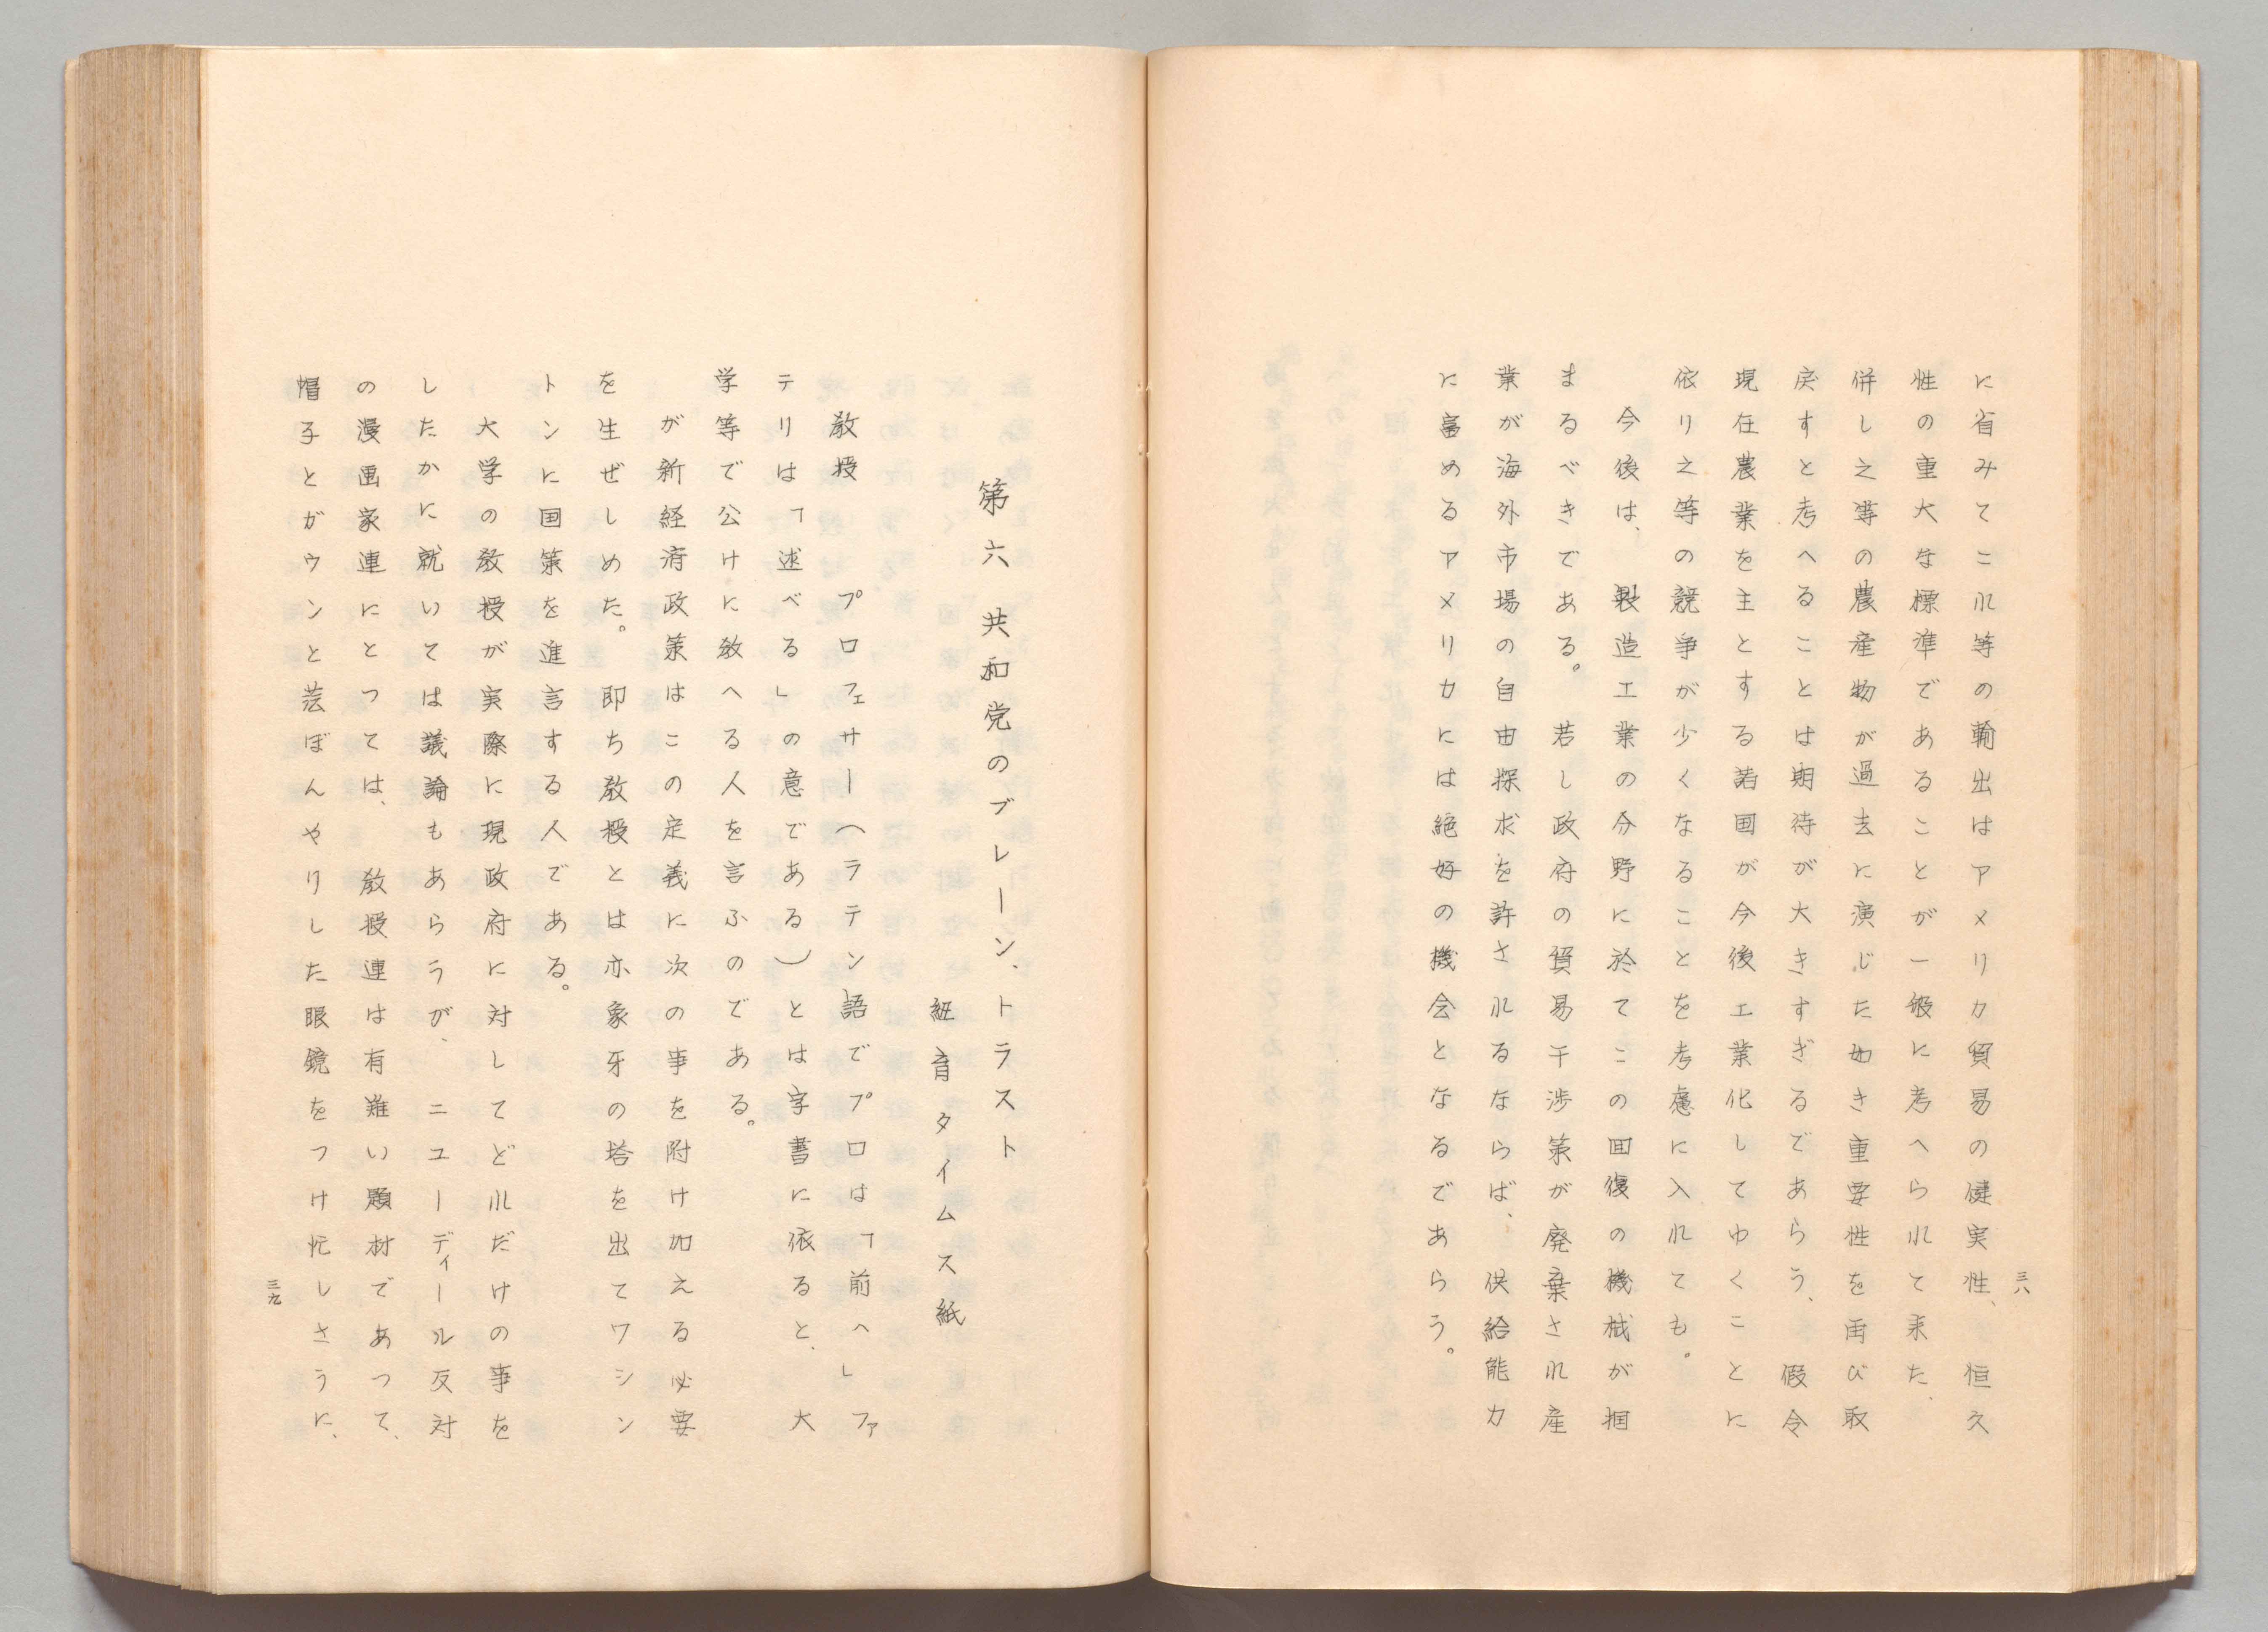 に省みてこれ等の輸出はアメリカ貿易の健実性、恒久
性の重大な標準であることが一般に考へられて来た、
併し之等の農産物が過去に演じた如き重要性を再び取
戻すと考へることは期待が大きすぎるであらう、假令
現在農業を主とする諸国が今後工業化してゆくことに
依り之等の競争が少くなることを考慮に入れても。
今後は、製造工業の分野に於てこの回復の機械が掴
まるべきである。若し政府の貿易干渉策が廃棄され産
業が海外市場の自由探求を許されるならば、供給能力
に富めるアメリカには絶好の機会となるであらう。
三八
第六 共和党のブレーン、トラスト
紐育タイムス紙
教授 プロフェサー(ラテン語でプロは「前へ」ファ
テリは「述べる」の意である)とは字書に依ると、大
学等で公けに教へる人を言ふのである。
が新経済政策はこの定義に次の事を附け加える必要
を生ぜしめた。即ち教授とは亦象牙の塔を出てワシン
トンに国策を進言する人である。
大学の教授が実際に現政府に対してどれだけの事を
したかに就いては議論もあらうが、ニユーディール反対
の漫画家連にとつては、教授連は有難い題材であつて、
帽子とガウンと茫ぼんやりした眼鏡をつけ忙しさうに、
三九